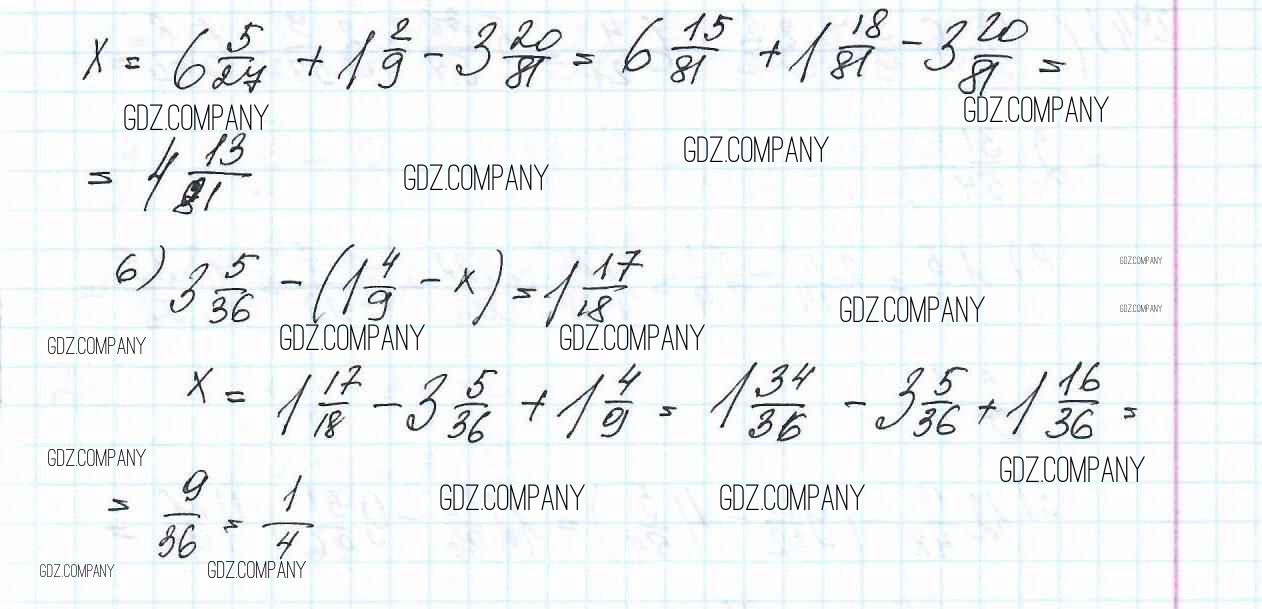 x = 6 5/27 + 1 2/9 - 3 20/81 = 6 15/81 + 1 18/81 - 3 20/81 =
GDZ.COMPANY GDZ.COMPANY
GDZ.COMPANY
= 4 13/81 GDZ.COMPANY
6) 3 5/36 - (1 4/9 - x) = 1 17/18
GDZ.COMPANY
GDZ.COMPANY GDZ.COMPANY
GDZ.COMPANY GDZ.COMPANY GDZ.COMPANY
x = 1 17/18 - 3 5/36 + 1 4/9 = 1 34/36 - 3 5/36 + 1 16/36 =
GDZ.COMPANY GDZ.COMPANY
GDZ.COMPANY GDZ.COMPANY
= 9/36 = 1/4
GDZ.COMPANY GDZ.COMPANY